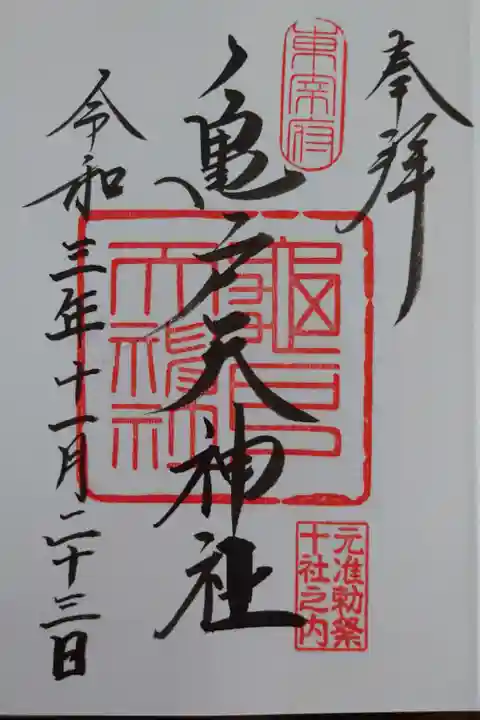 奉拝
東宰府
亀戸天神社
亀戸天神社
元准勅祭
十社之内
令和三年十一月二十三日